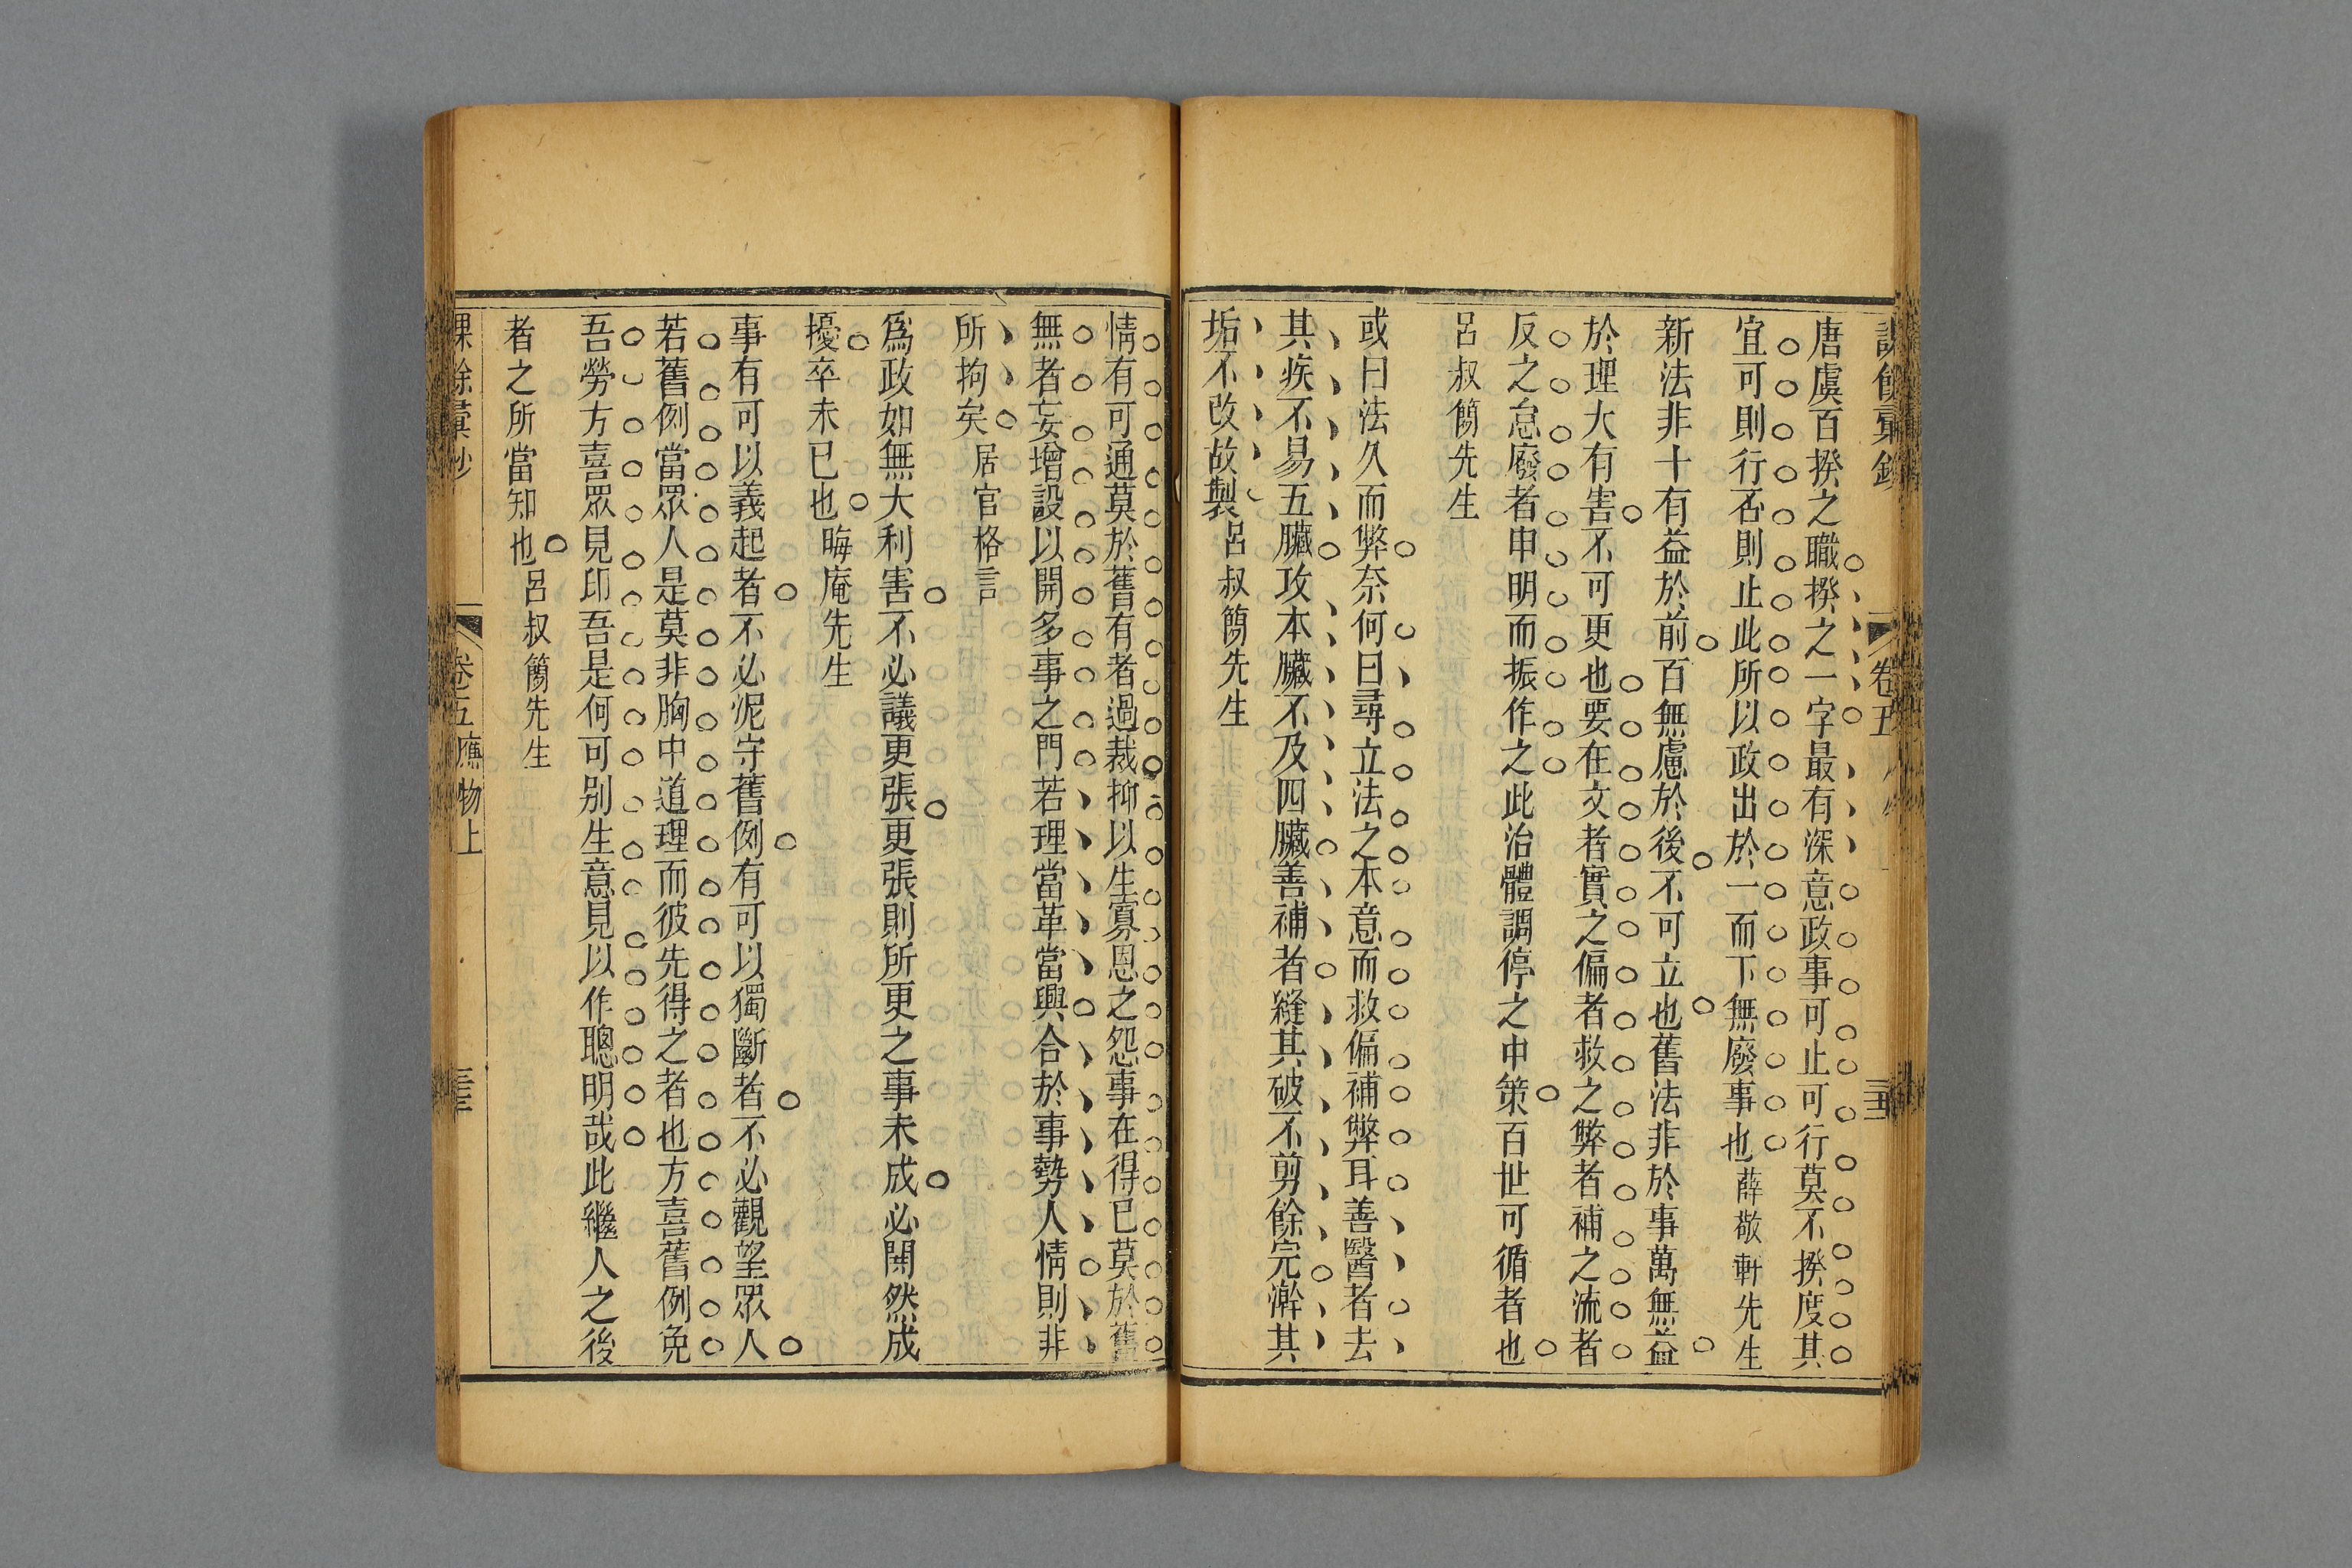 課餘彙鈔 卷五
唐虞百揆之職揆之一字最有深意政事可止可行莫不揆度其
宜可則行否則止此所以政出於一而下無廢事也薛敬軒先生
新法非十有益於前百無慮於後不可立也舊法非於事萬無益
於理大有害不可更也要在文者實之偏者救之弊者補之流者
反之怠廢者申明而振作之此治體調停之中策百世可循者也
呂叔簡先生
或曰法久而弊奈何曰尋立法之本意而救偏補弊耳善醫者去
其疾不易五臟攻本臟不及四臟善補者縫其破不剪餘完澣其
垢不改故製呂叔簡先生
情有可通莫於舊有者過裁抑以生寡恩之怨事在得已莫於舊
無者妄增設以開多事之門若理當革當興合於事勢人情則非
所拘矣居官格言
爲政如無大利害不必議更張更張則所更之事未成必閧然成
擾卒未已也晦庵先生
事有可以義起者不必泥守舊例有可以獨斷者不必觀望眾人
若舊例當眾人是莫非胸中道理而彼先得之者也方喜舊例免
吾勞方喜眾見印吾是何可別生意見以作聰明哉此繼人之後
者之所當知也呂叔簡先生
課餘彙鈔 卷五應物上